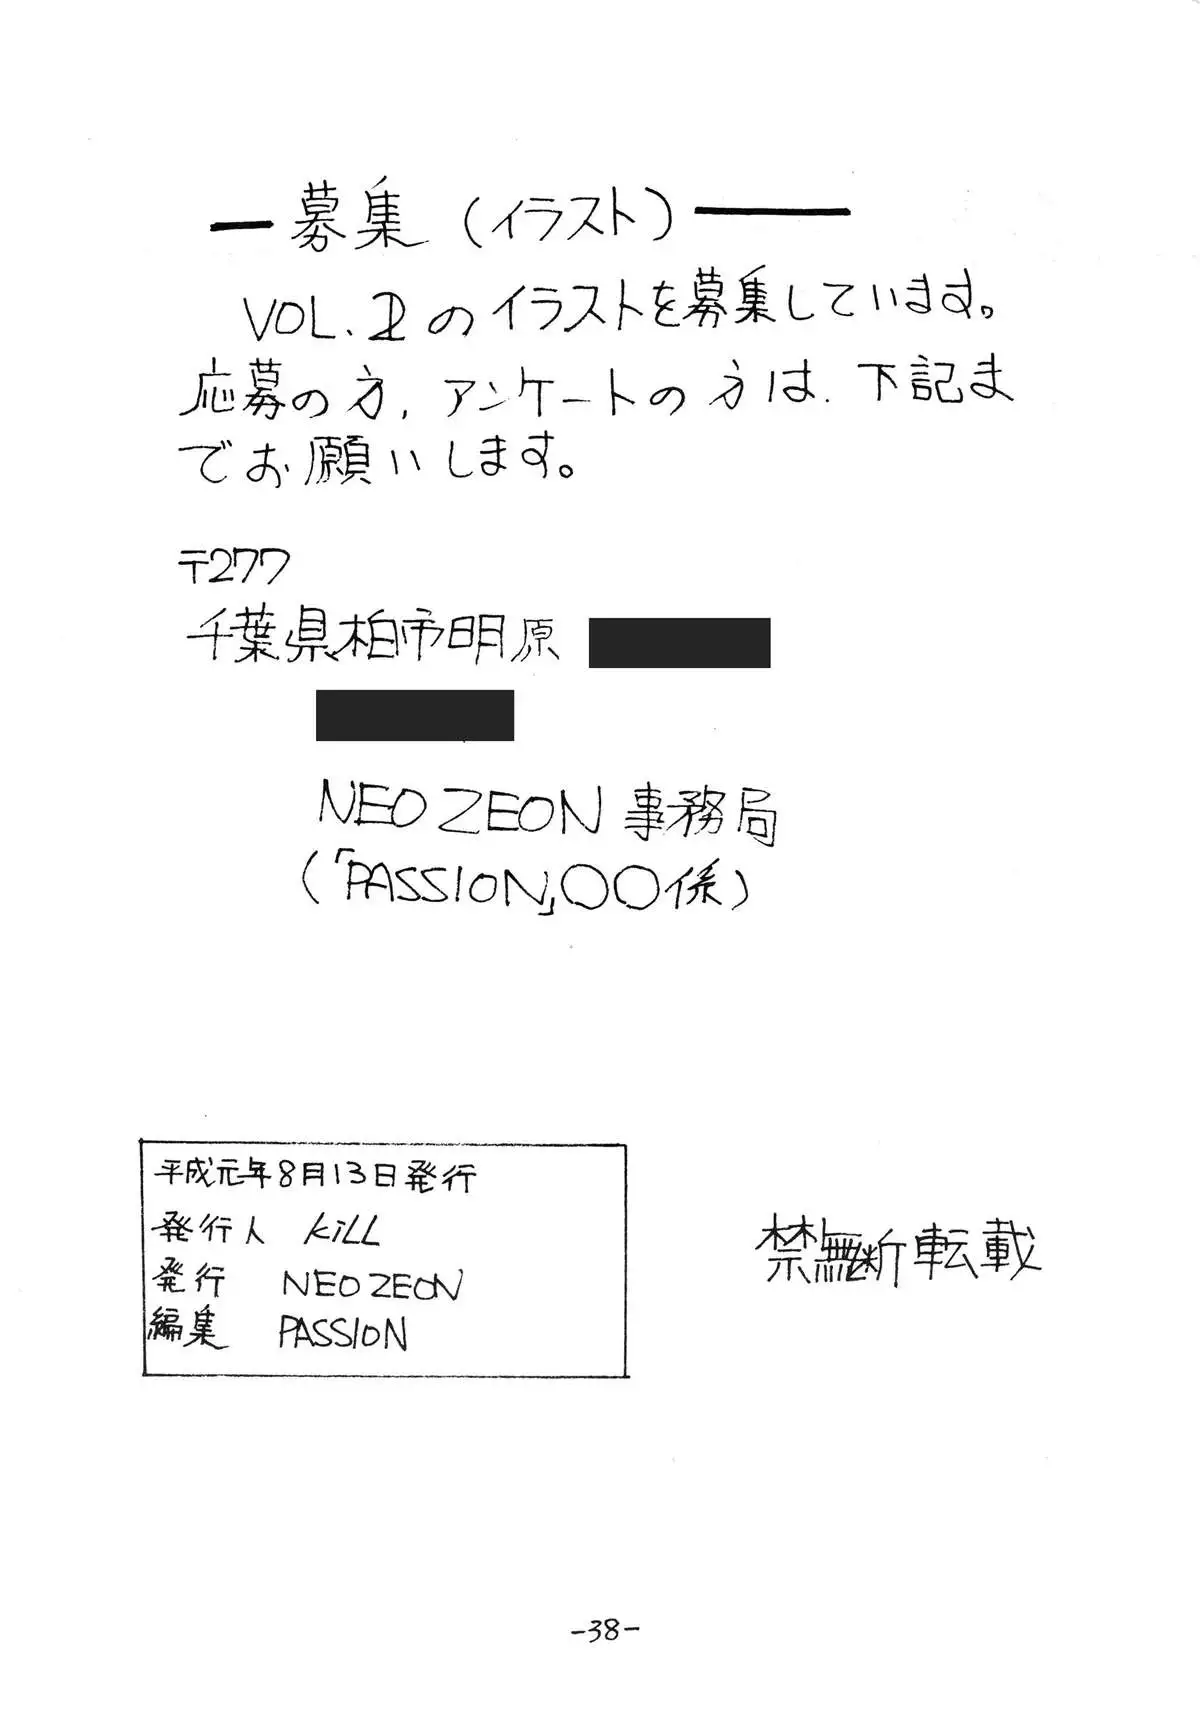 募集(イラスト)
VOL.2のイラストを募集しています。
応募の方,アンケートの方は.下記ま
でお願いします。
〒277
千葉県柏市明原
NEO ZEON 事務局
(「PASSION」〇〇係)
平成元年8月13日発行
発行人 KiLL
発行 NEO ZEON
編集 PASSION
禁無断転載
-38-